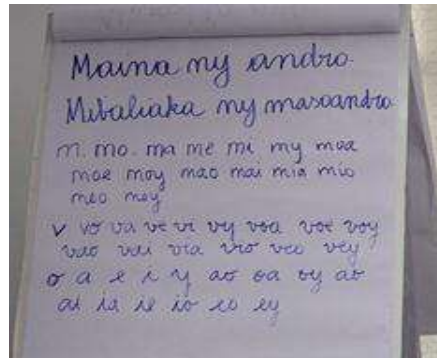 Maina ny andro.
Mibaliaka ny masoandro
m. mo. ma me mi my moa
moe moy mao mai mia mio
meo mey
v vo va ve vi vy voa voe voy
vao vai via vio veo vey
o a e i y ao oa oy ao
ai ia ie io eo ey